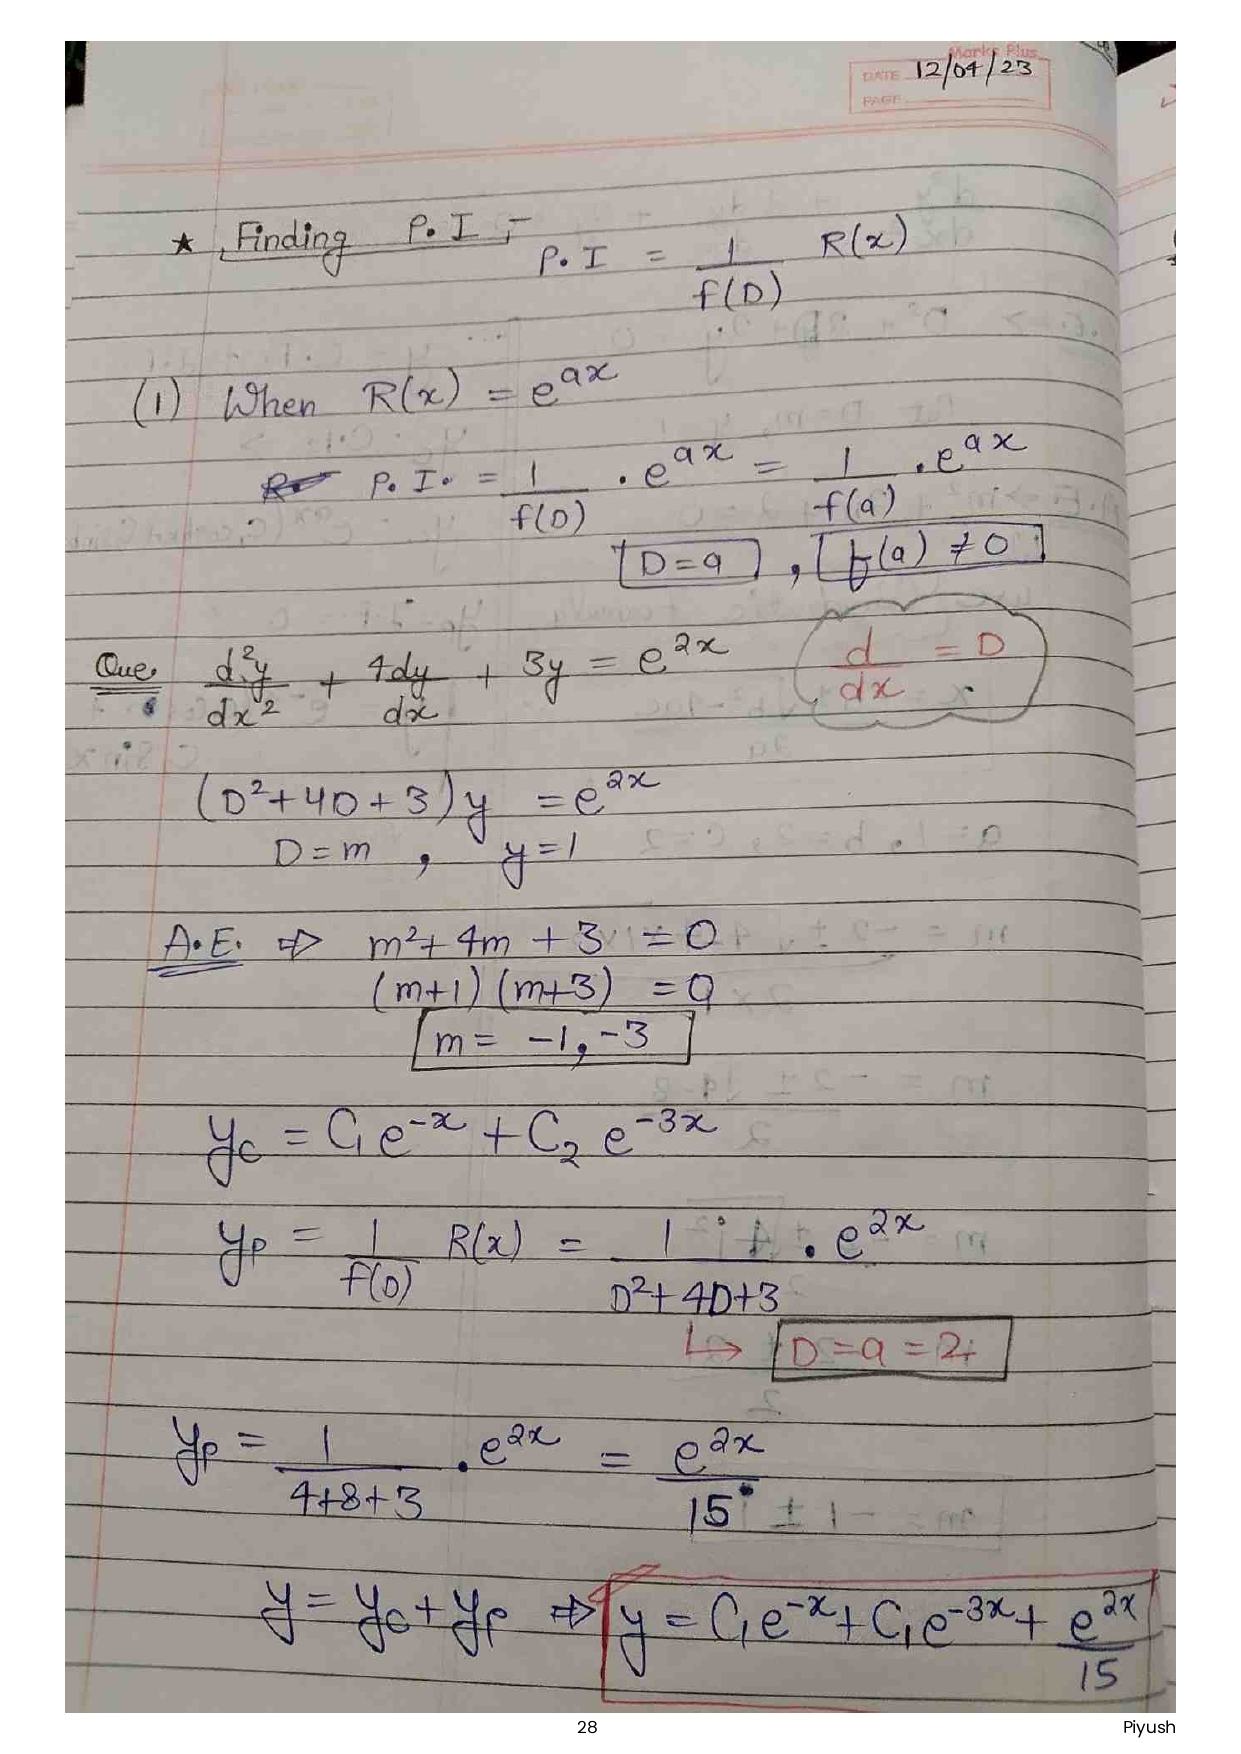 Marks Plus
DATE 12/04/23
PAGE
★ Finding P.I :-
P.I = 1/f(D) R(x)
(1) When R(x) = e^ax
P.I. = 1/f(D) . e^ax = 1/f(a) . e^ax
D=a , f(a) ≠ 0
Que. d²y/dx² + 4dy/dx + 3y = e^2x d/dx = D
(D²+4D+3)y = e^2x
D=m , y=1
A.E. ⇒ m²+4m+3 = 0
(m+1)(m+3) = 0
m = -1,-3
yc = C₁e^-x + C₂ e^-3x
yp = 1/f(D) R(x) = 1/D²+4D+3 . e^2x
↳ D=a=2
yp = 1/4+8+3 . e^2x = e^2x/15
y = yc+yp ⇒ y = C₁e^-x + C₁e^-3x + e^2x/15
28
Piyush